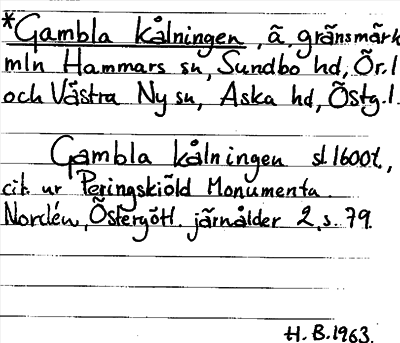 *Gambla kålningen, ä. gränsmärk
mln Hammars sn, Sundbo hd, Ör. l
och Västra Ny sn, Aska hd, Östg. l.
Gambla kålningen sl. 1600t.,
cit. ur Peringskiöld Monumenta
Nordén, Östergötl. järnålder 2, s. 79.
H. B. 1963.